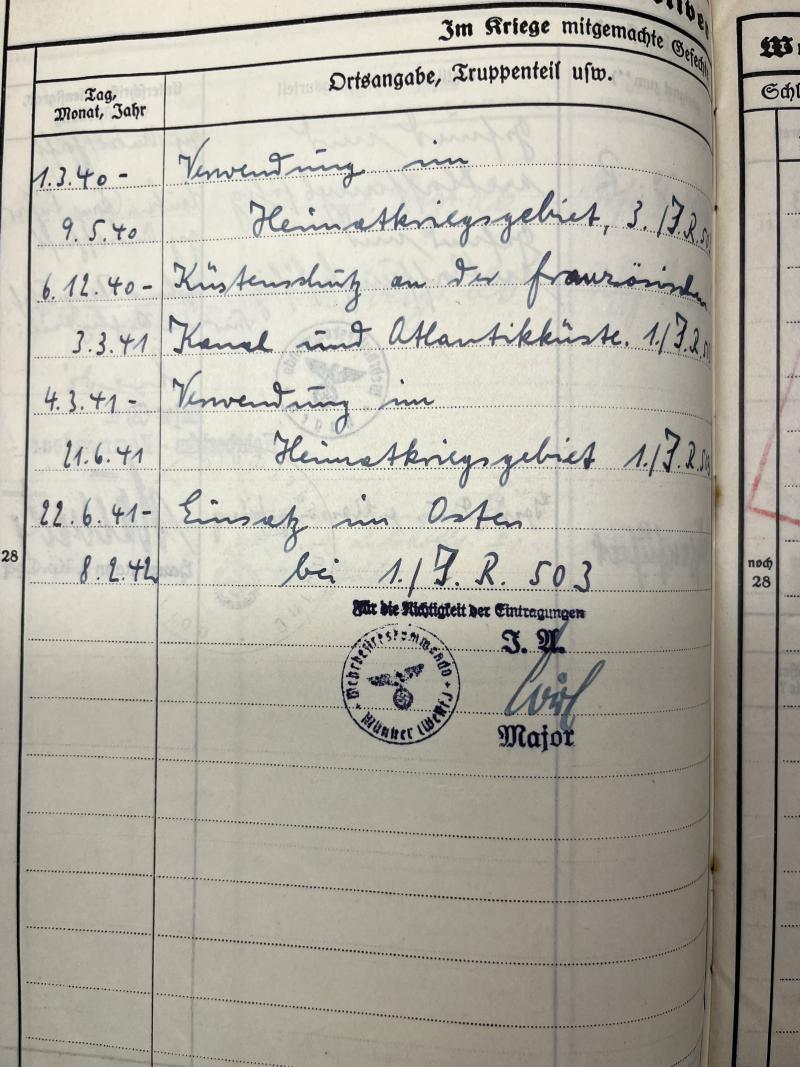 Im Kriege mitgemachte Gefech
Tag, Monat, Jahr
Ortsangabe, Truppenteil usw.
1.3.40 - Verwendung im
9.5.40 Heimatkriegsgebiet, 3./J.R. 50
6.12.40 - Küstenschutz an der französischen
3.3.41 Kanal und Atlantikküste. 1./J.R. 50
4.3.41 - Verwendung im
21.6.41 Heimatkriegsgebiet 1./J.R. 50
22.6.41 - Einsatz im Osten
28
8.2.42 bei 1./J.R. 503
Für die Richtigkeit der Eintragungen
J. A.
Wehrbezirkskommando
Münster (Westf.)
Major
noch
28